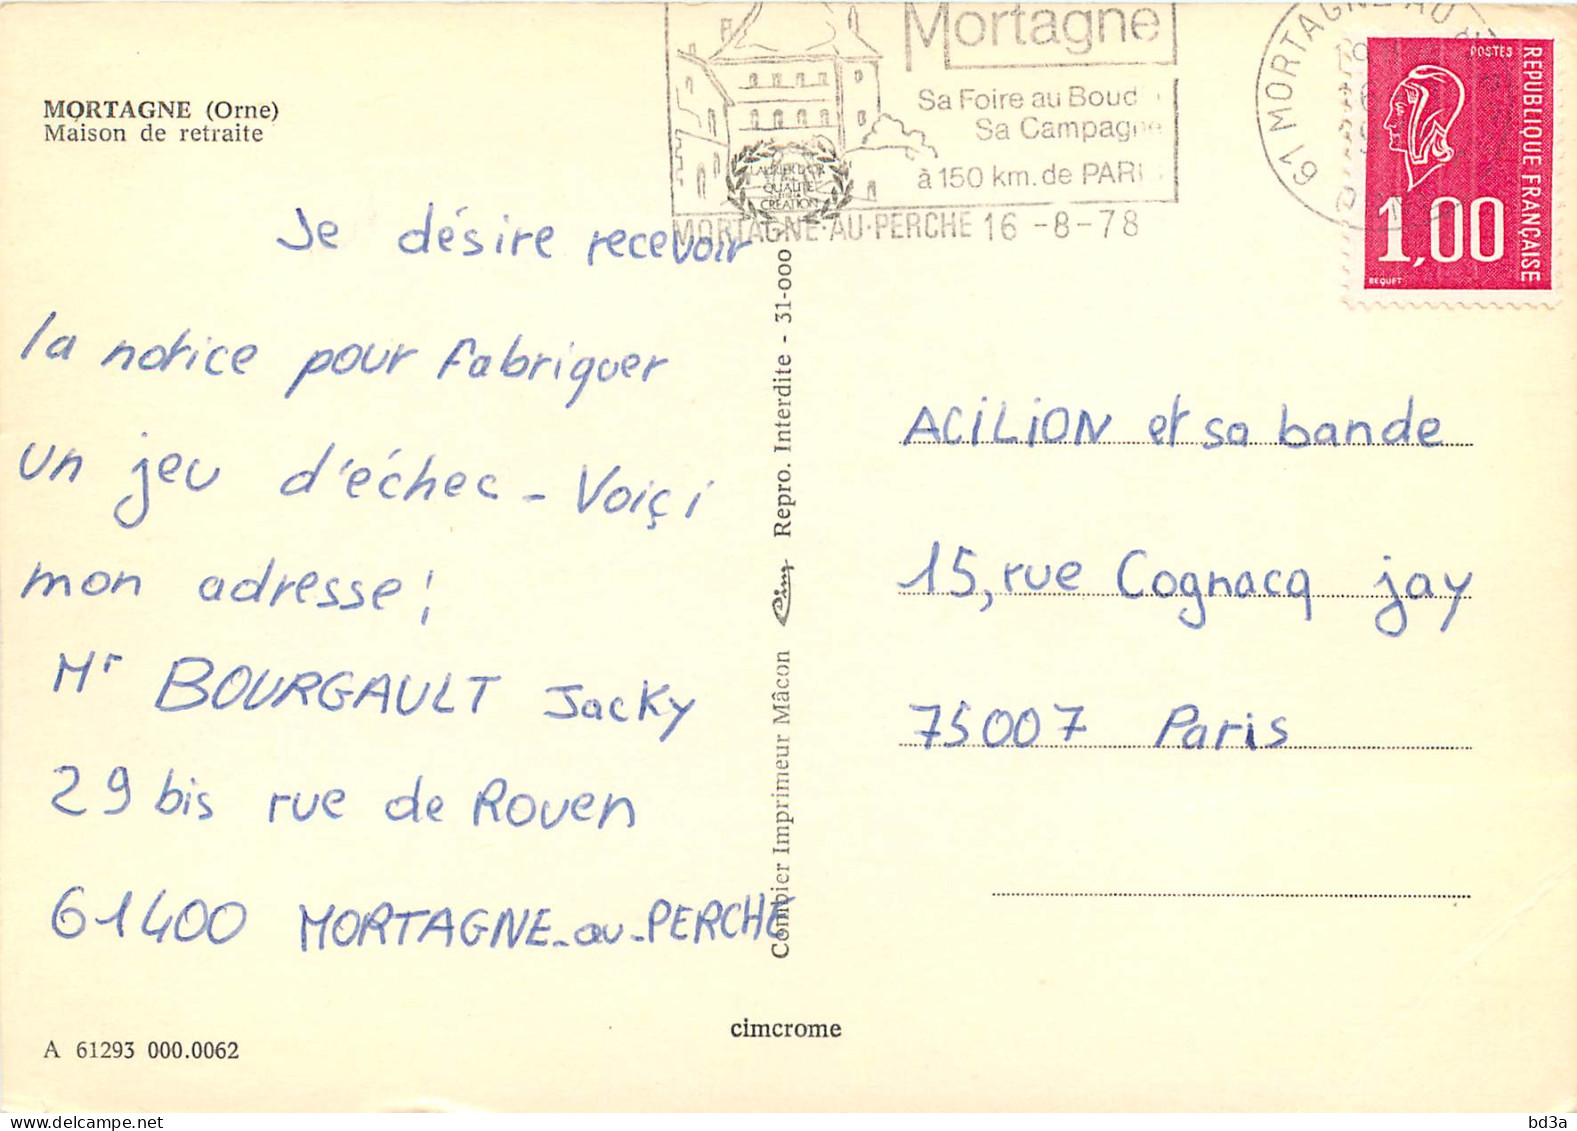 MORTAGNE (Orne)
Maison de retraite
Mortagne
Sa Foire au Boud
Sa Campagne
à 150 km. de PARI
MORTAGNE-AU-PERCHE 16 -8-78
LAURIER D'OR
QUALITÉ
CRÉATION
61 MORTAGNE AU
POSTES
REPUBLIQUE FRANÇAISE
1,00
BEQUET
Je désire recevoir
la notice pour fabriquer
un jeu d'échec - Voiçi
mon adresse !
Mr BOURGAULT Jacky
29 bis rue de Rouen
61400 MORTAGNE-au-PERCHE
ACILION et sa bande
15, rue Cognacq jay
75007 Paris
Combier Imprimeur Mâcon Cim Repro. Interdite - 31-000
cimcrome
A 61293 000.0062
www.delcampe.net
bd3a